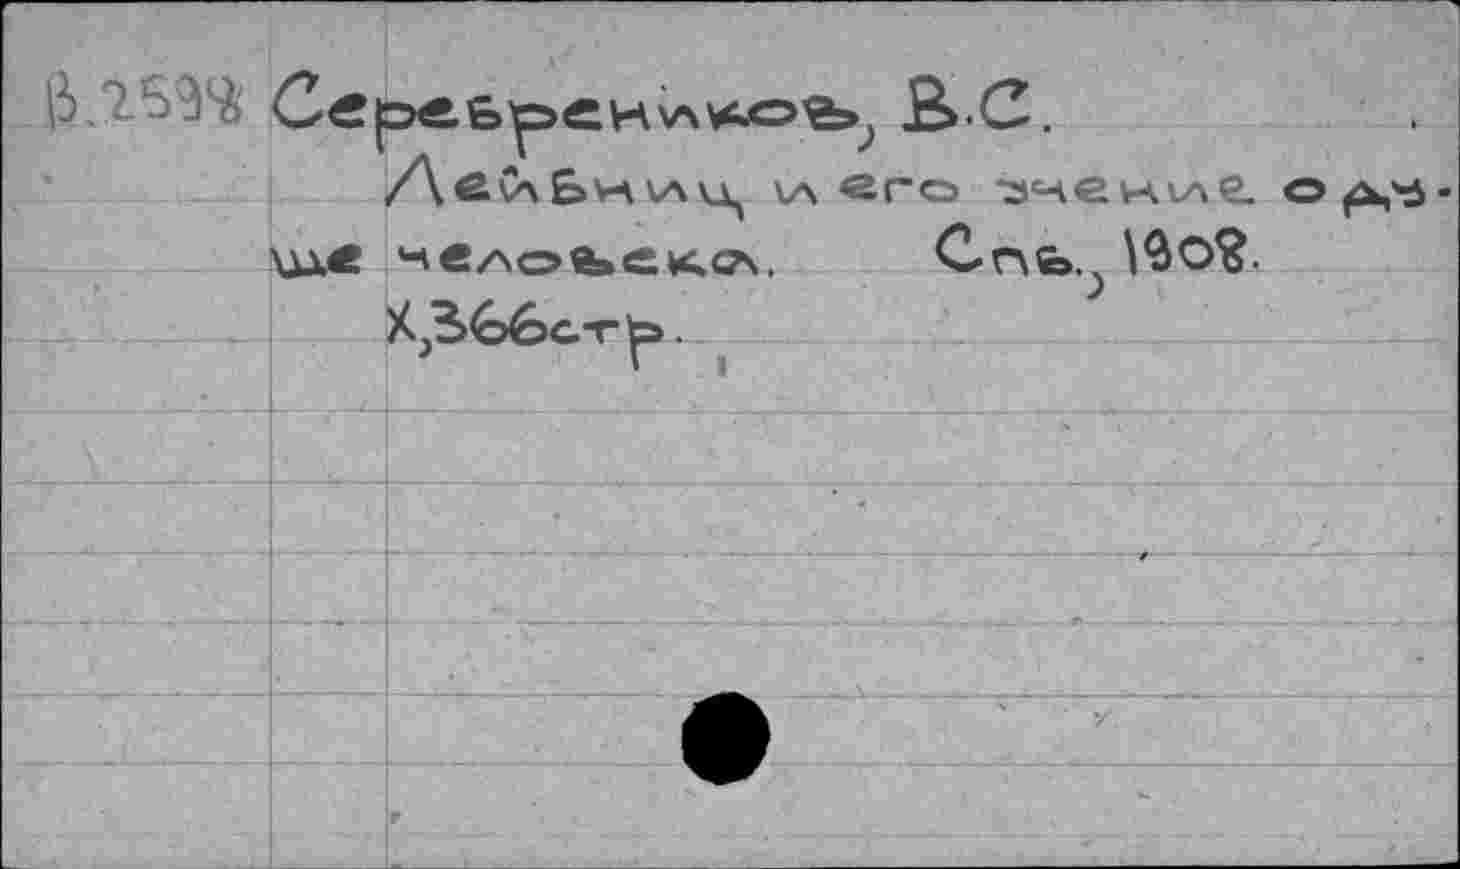 В.2598 Серебренников, В.С.
Лейбниц и его учение о ду-
ше человека. Спб., 1908.
X,366стр.